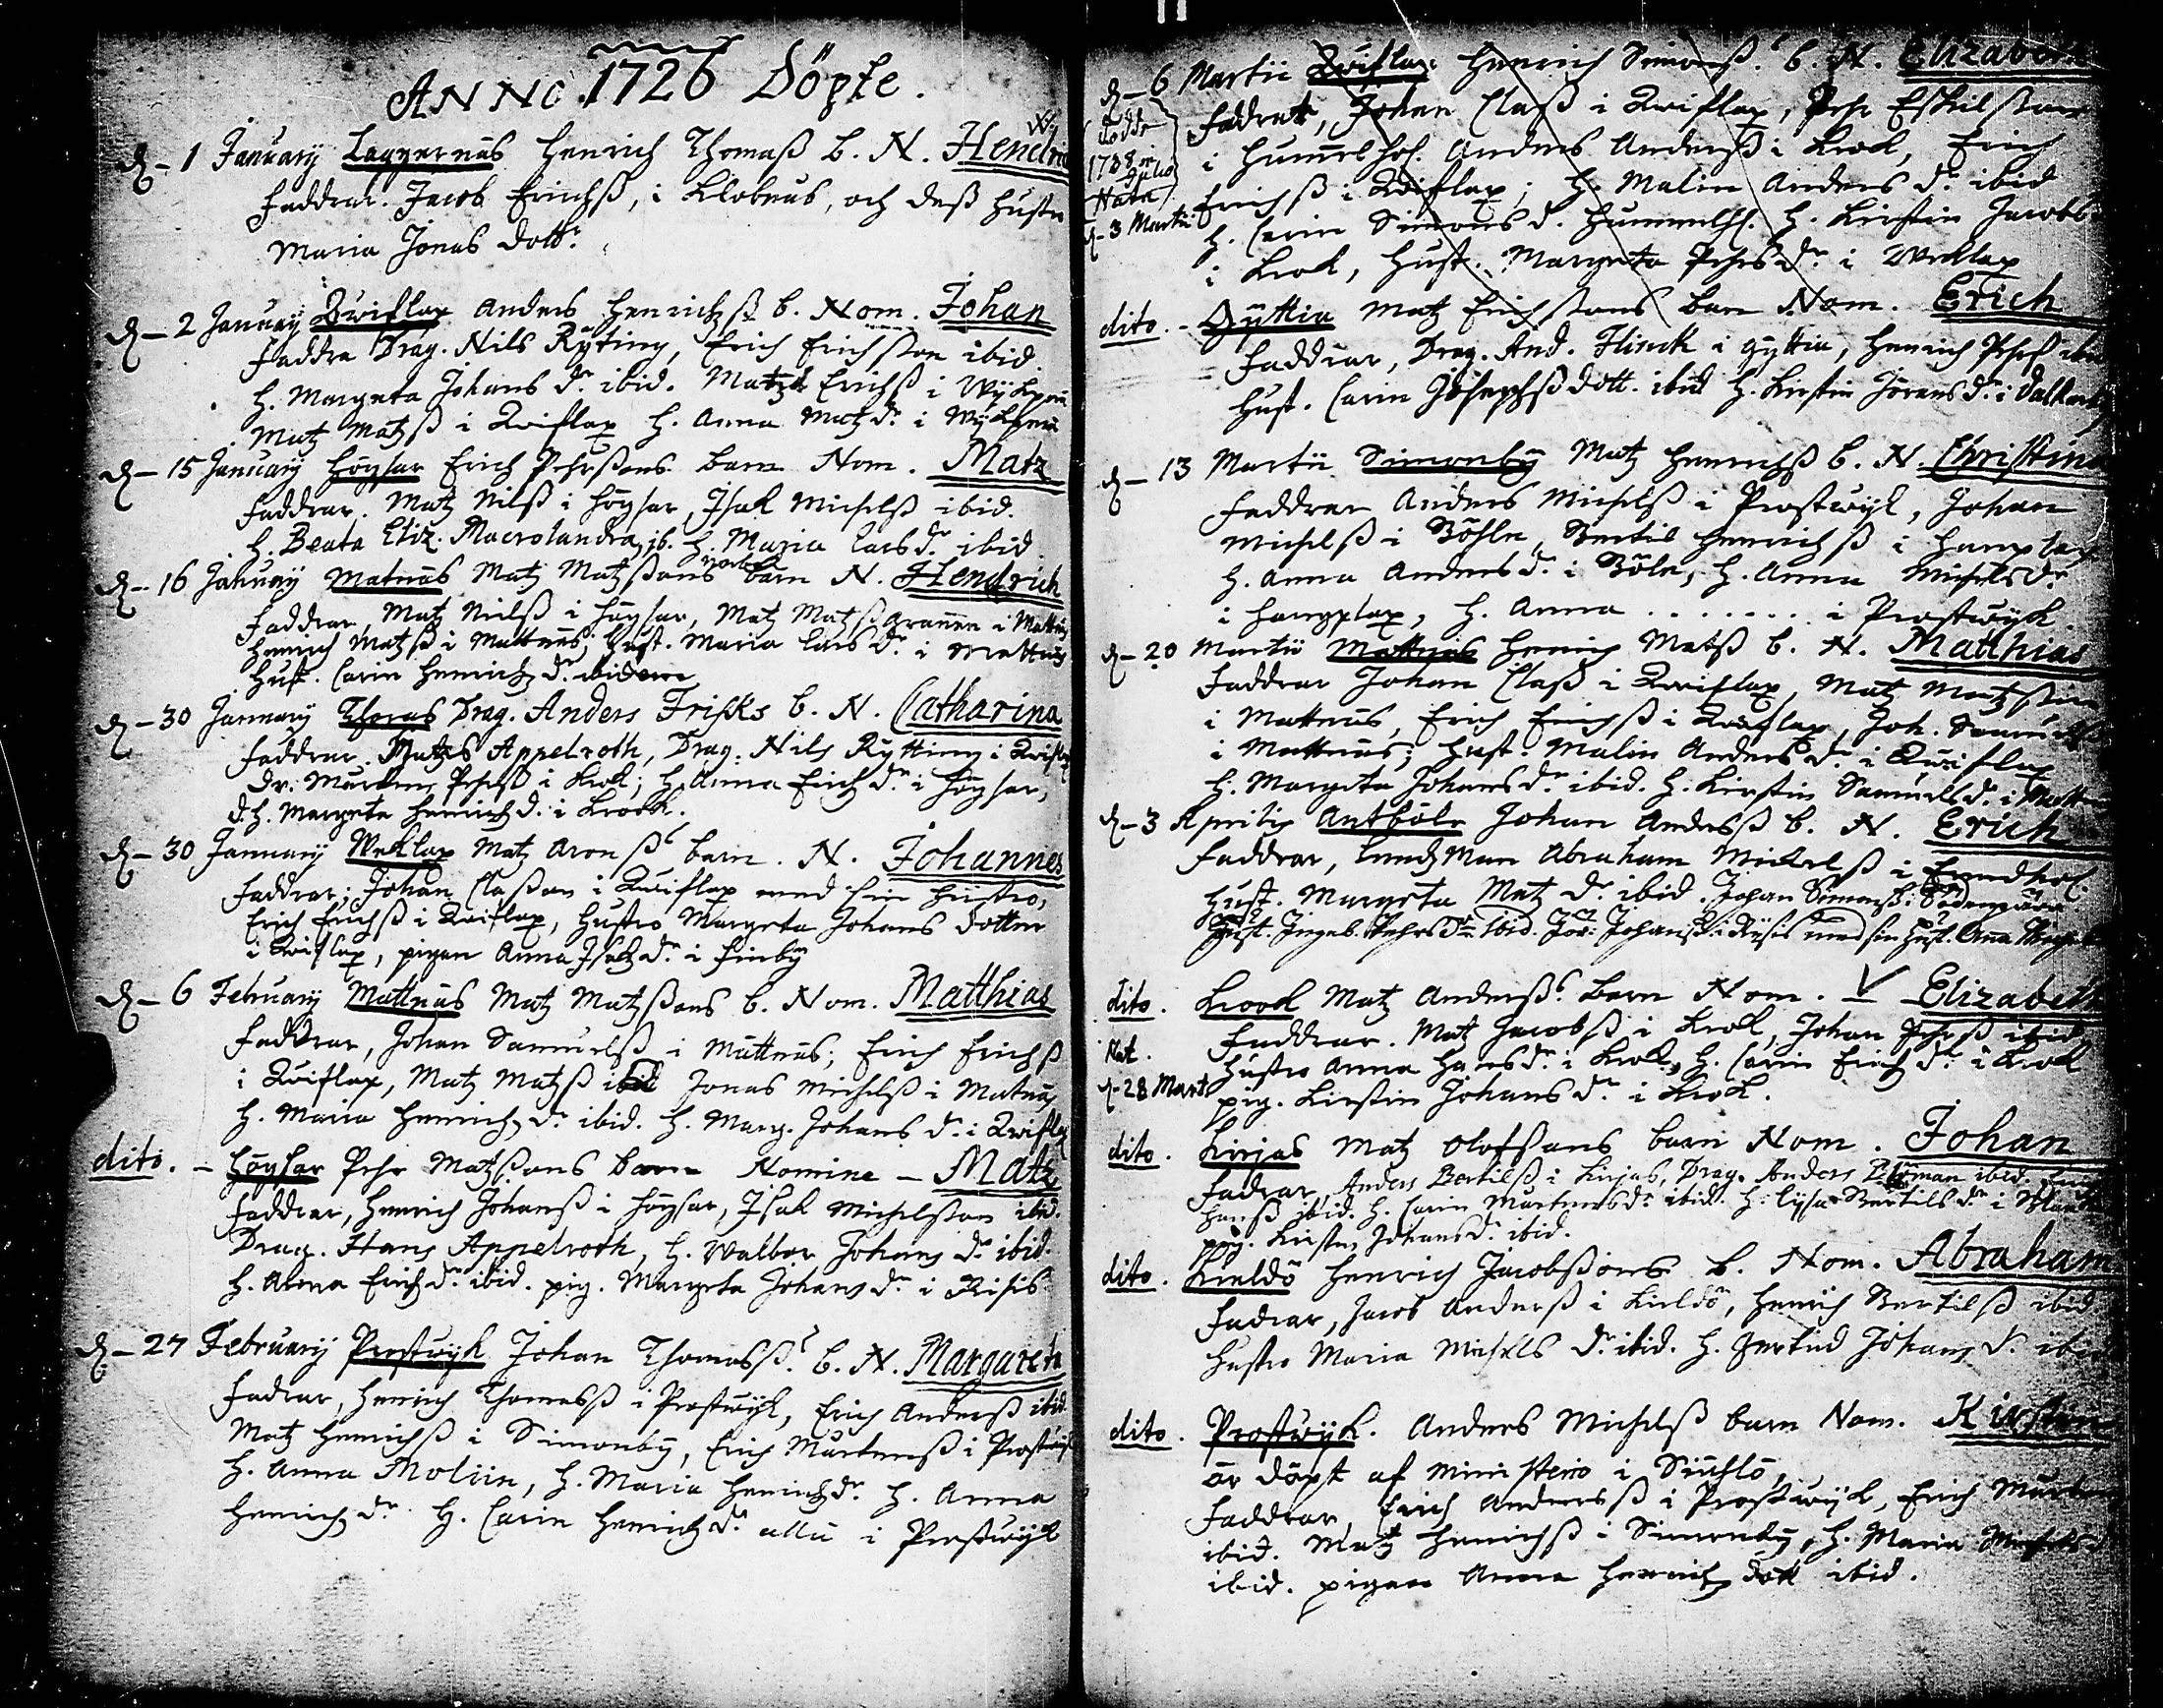 ANNO 1726 Döpte.
d. 1 January Laggernäs Henrich Thomaß b. N. Hendric
Faddrar. Jacob Erichß, i Klobnäs, och deß hustro
Maria Jonas dottr.
d. 2 January Qwiflax Anders Henrichß b. Nom. Johan
Faddra Drag. Nils Ryting, Erich Erichßon ibid.
H. Margeta Johans dr. ibid. Matz Erichß i
Matz Matzß i Qwiflax H. Anna Matz dr. i
d. 15 January Höghsar Erich Pehrßons barn Nom. Matz
Faddrar. Matz Nilß i Höghsar, Isak Michelß ibid.
H. Beata Eliz. Macrolandra, ib. H. Maria Lars dr. ibid.
d. 16 January Matnäs Matz Matzßons barn N. Hendrich
Faddrar, Matz Nilß i Höghsar, Matz Matzß i Mattnäs
Henrich Matzß i Mattnäs; Hust. Maria Lars dr. i Mattnäs
Hust. Carin Henrich dr. ibidem
d. 30 January Thoras Drag. Anders Frisks b. N. Catharina
Faddrar. Matz Appelroth, Drag. Nils Rytting i Qwiflax
Dr. Mårten Pehrß i Krok; H. Anna Erich dr. i Höghsar,
d. H. Margeta Henrich d. i Krook.
d. 30 January Weklax Matz Aronß barn. N. Johannes
Faddrar; Johan Claßon i Qwiflax med sin hustro,
Erich Erichß i Qwiflax, Hustro Margeta Johans dotter
i Qwiflax, pigan Anna Isakz dr. i Finby
d. 6 February Mattnäs Matz Matzßons b. Nom. Matthias
Faddrar, Johan Samuelß i Mattnäs; Erich Erichß
i Qwiflax, Matz Matzß ibid Jonas Michelß i Matnäs
H. Maria Henrich dr. ibid. H. Marg. Johans dr. i Qwiflax
dito. Höghsar Pehr Matzßons barn Nomine Matz
Faddrar, Henrich Johanß i Höghsar, Isak Michelßon ibid.
Drag. Hans Appelroth, H. Walbor Johans dr. ibid.
H. Anna Erich dr. ibid. pig. Margeta Johans dr. i Risis
d. 27 February Prostwyk Johan Thomasß b. N. Margareta
Fadrar, Henrich Thomasß i Prostwyk, Erich Anderß ibid.
Matz Henrichß i Simonby, Erich Mårtenß i Prostwyk
H. Anna Moliin, H. Maria Henrich dr. H. Anna
Henrich dr. H. Carin Henrich dr. alla i Prostwyk
d. 6 Martii Qwiflax Henrich Simonß b. N. Elizabeth
Faddrar, Johan Claß i Qwiflax, Pehr Eskilßon
i Hummelhol. Anders Anderß i Krok, Erich
Erichß i Qwiflax; H. Malin Anders dr. ibid
H. Carin Simons d. Hummelh. H. Kirstin Jacobs
i Krok, Hust. Margeta Pehrs dr. i Weklax
Födde
1728
Julio
Nata
d. 3 Martii
dito. Gyttia Matz Erichßons barn Nom. Erich
Faddrar, Drag. And. Flinck i Gyttia, Henrich Pehrß ibid
Hust. Carin Josephß dott. ibid H. Kirstin Jörens dr. i Dalkarby
d. 13 Martii Simonby Matz Henrichß b. N. Christina
Faddrar Anders Michelß i Prostwyk, Johan
Michelß i Böhle, Bertil Henrichß i Hanglax
H. Anna Anders dr. i Böle, H. Anna Michels dr.
i Hanglax, H. Anna . . . . . . . i Prostwyk.
d. 20 Martii Mattnäs Henrich Matß b. N. Matthias
Faddrar Johan Claß i Qwiflax, Matz Matzßon
i Mattnäs, Erich Erichß i Qwiflax, Joh. Samuelß
i Mattnäs; Hust. Malin Anders dr. i Qwiflax
H. Margeta Johans dr. ibid. H. Kirstin Samuels dr. i Matt
d. 3 Aprilis Antböle Johan Anderß b. N. Erich
Faddrar, Lands Man Abraham Mickelß i
Hust. Margeta Matz dr. ibid. Johan Simonß i
Hust. Ingeb. Pehrs dr. ibid. Jör. Johanß i Rysis med sin Hust. Anna
dito. Krook Matz Anderß barn Nom. Elizabeth
Faddrar. Matz Jacobß i Krok, Johan Pehrß ibid
Hustro Anna Hans dr. i Krok, H. Carin Erich dr. i Krok
pig. Kirstin Johans dr. i Krok.
Nat.
d. 28 Mart.
dito. Kirjas Matz Olofßons barn Nom. Johan
Fadrar, Anders Bertilß i Kirjas, Drag. Anders ibid.
Hanß ibid. H. Carin Mårtens dr. ibid. H. Lysa Bertils dr. i
pig. Kirstin Johans dr. ibid.
dito. Kieldö Henrich Jacobßons b. Nom. Abraham
Fadrar, Jacob Anderß i Kieldö, Henrich Bertilß ibid
Hustro Maria Michels dr. ibid. H. Gertrud Johans dr. ibid
dito. Prostwyk. Anders Michelß barn Nom. Kirstin
är döpt af Ministerio i
Faddrar, Erich Anderß i Prostwyk, Erich Mårten
ibid. Matz Henrichß i Simonby, H. Maria Michels d
ibid. pigan Anna Henrich dott ibid.